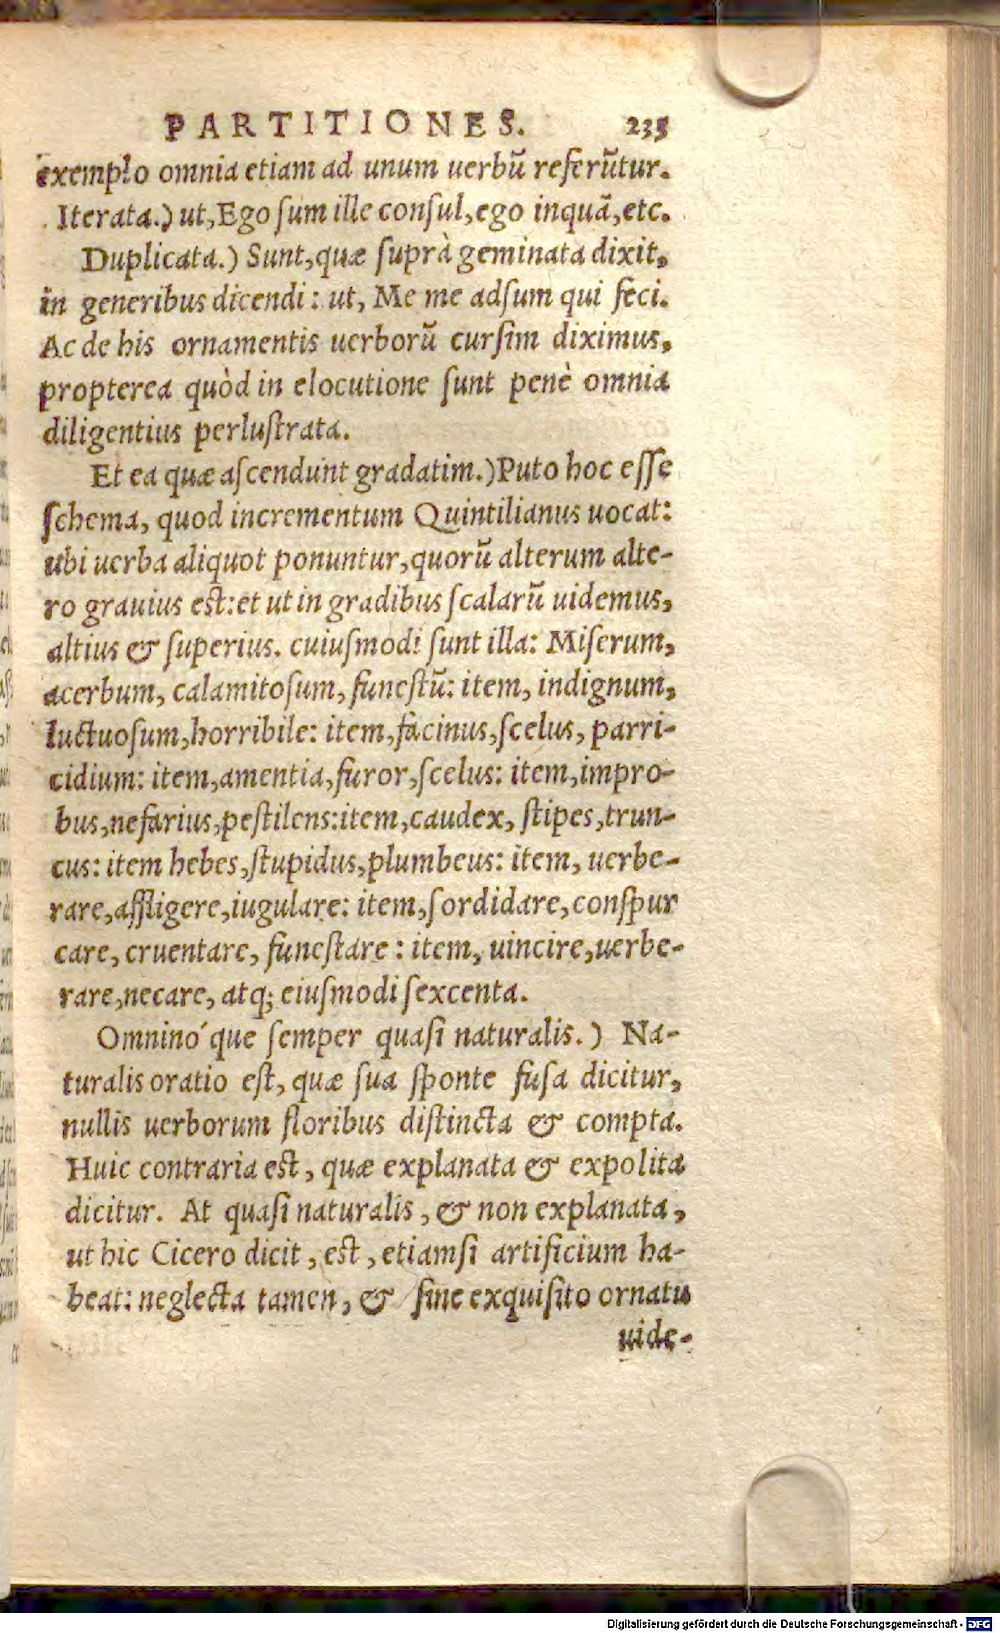 PARTITIONES. 235
exemplo omnia etiam ad unum uerbũ referũtur.
Iterata.) ut, Ego sum ille consul, ego inquã, etc.
Duplicata.) Sunt, quæ suprà geminata dixit,
in generibus dicendi: ut, Me me adsum qui feci.
Ac de his ornamentis uerborũ cursim diximus,
propterea quòd in elocutione sunt penè omnia
diligentius perlustrata.
Et ea quæ ascendunt gradatim.) Puto hoc esse
schema, quod incrementum Quintilianus uocat:
ubi uerba aliquot ponuntur, quorũ alterum alte-
ro grauius est: et ut in gradibus scalarũ uidemus,
altius & superius. cuiusmodi sunt illa: Miserum,
acerbum, calamitosum, funestũ: item, indignum,
luctuosum, horribile: item, facinus, scelus, parri-
cidium: item, amentia, furor, scelus: item, impro-
bus, nefarius, pestilens: item, caudex, stipes, trun-
cus: item hebes, stupidus, plumbeus: item, uerbe-
rare, affligere, iugulare: item, sordidare, conspur
care, cruentare, funestare: item, uincire, uerbe-
rare, necare, atq; eiusmodi sexcenta.
Omnino´que semper quasi naturalis.) Na-
turalis oratio est, quæ sua sponte fusa dicitur,
nullis uerborum floribus distincta & compta.
Huic contraria est, quæ explanata & expolita
dicitur. At quasi naturalis, & non explanata,
ut hic Cicero dicit, est, etiamsi artificium ha-
beat: neglecta tamen, & sine exquisito ornatu
uide-
Digitalisierung gefördert durch die Deutsche Forschungsgemeinschaft - DFG